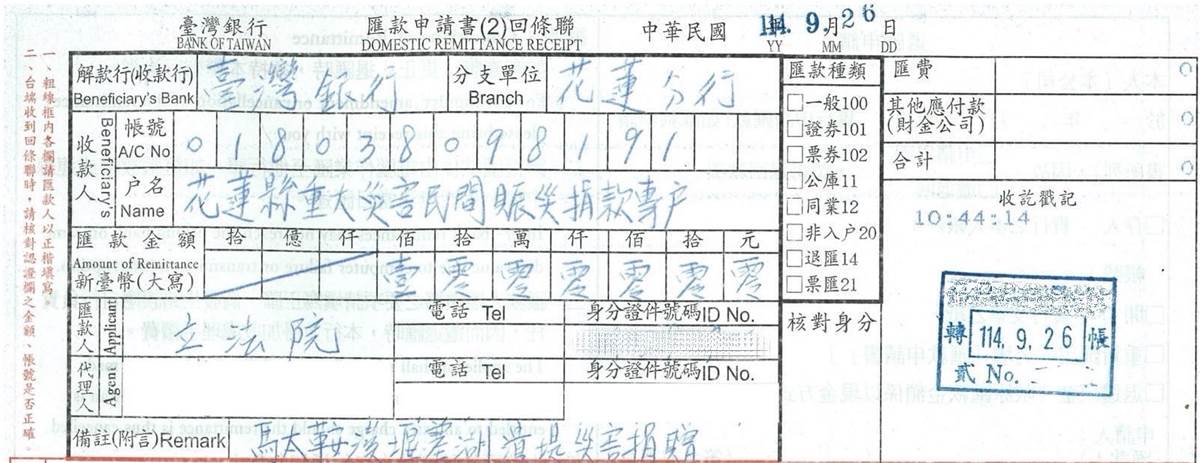 臺灣銀行 匯款申請書(2)回條聯 中華民國 114.9月26日
BANK OF TAIWAN DOMESTIC REMITTANCE RECEIPT YY MM DD
二、台端收到回條聯時，請核對認證欄之金額、帳號是否正確。
一、粗線框內各欄請匯款人以正楷填寫。
解款行(收款行) 臺灣銀行 分支單位 花蓮分行
Beneficiary's Bank Branch
收款人 Beneficiary's
帳號 A/C No 018038098191
戶名 Name 花蓮縣重大災害民間賑災捐款專戶
匯款金額 拾 億 仟 佰 拾 萬 仟 佰 拾 元
Amount of Remittance
新臺幣(大寫) 壹 零 零 零 零 零 零
匯款人 Applicant 立法院 電話 Tel 身分證件號碼ID No.
代理人 Agent 電話 Tel 身分證件號碼ID No.
備註(附言)Remark 馬太鞍溪堰塞湖潰堤災害捐贈
匯款種類
□一般100
□證券101
□票券102
□公庫11
□同業12
□非入戶20
□退匯14
□票匯21
核對身分
匯費 0
其他應付款(財金公司) 0
合計 0
收訖戳記
10:44:14
轉 114.9.26 帳
貳 No.